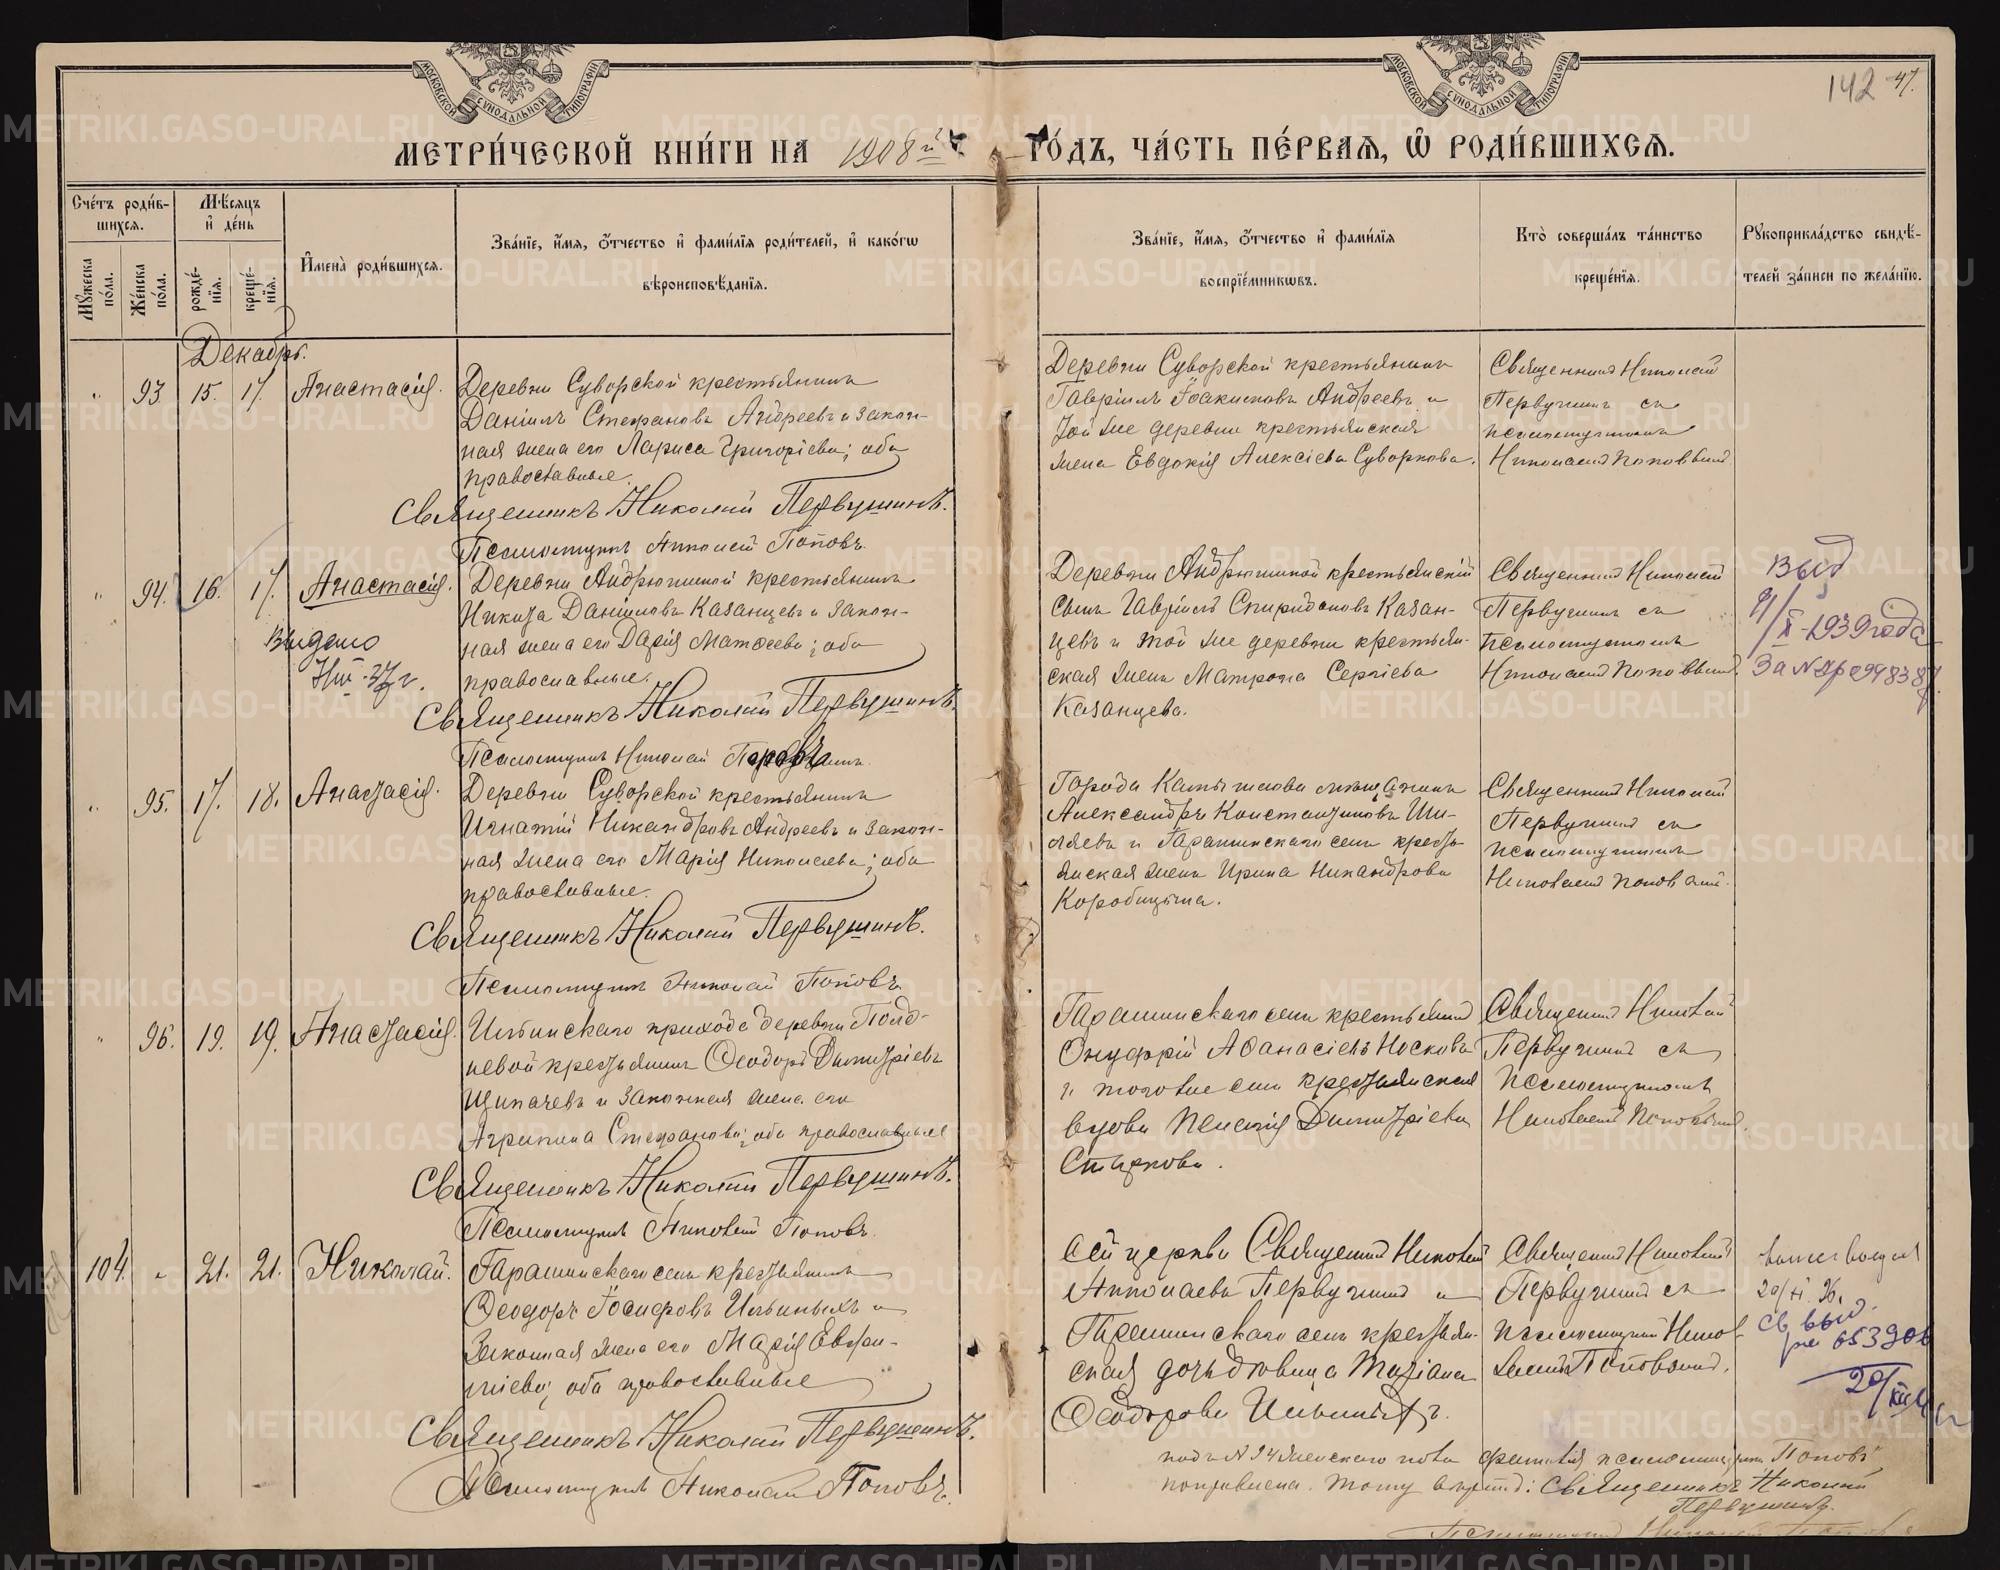 МОСКОВСКОЙ СѴНОДАЛЬНОЙ ТИПОГРАФІИ
МОСКОВСКОЙ СѴНОДАЛЬНОЙ ТИПОГРАФІИ
142 47.
МЕТРИ́ЧЕСКОЙ КНИ́ГИ НА 1908й
ГО́ДЪ, ЧА́СТЬ ПЕ́РВАѦ, Ѡ РОДИ́ВШИХСѦ.
Сче́тъ роди́в-
шихсѧ.
Мꙋжеска по́ла.
Же́нска по́ла.
Мѣ́сѧцъ
и҆ де́нь
рожде́-
нїѧ.
креще́-
нїѧ.
И҆мена̀ роди́вшихсѧ.
Зва́нїе, и҆́мѧ, ѻ҆́тчество и҆ фами́лїѧ роди́телей, и҆ како́гѡ
вѣроисповѣ́данїѧ.
Зва́нїе, и҆́мѧ, ѻ҆́тчество и҆ фами́лїѧ
воспрїе́мникѡвъ.
Кто̀ соверша́лъ та́инство
креще́нїѧ.
Рꙋкоприкла́дство свидѣ́-
телей за́писи по жела́нїю.
Декабрь.
" 93. 15. 17. Анастасія.
Деревни Суворской крестьянинъ
Даніилъ Стефановъ Андреевъ и закон-
ная жена его Лариса Григоріева; оба
православные.
Священникъ Николай Первушинъ.
Псаломщикъ Николай Поповъ.
Деревни Суворской крестьянинъ
Гавріилъ Іоакимовъ Андреевъ и
той же деревни крестьянская
жена Евдокія Алексіева Суворкова.
Священникъ Николай
Первушинъ съ
псаломщикомъ
Николаемъ Поповымъ
" 94. 16. 17. Анастасія.
Выдано
Деревни Андрюшиной крестьянинъ
Никита Даніиловъ Казанцевъ и закон-
ная жена его Дарія Матѳеева; оба
православные.
Священникъ Николай Первушинъ.
Псаломщикъ Николай
Деревни Андрюшиной крестьянскій
сынъ Гавріилъ Спиридоновъ Казан-
цевъ и той же деревни крестьян-
ская жена Матрона Сергіева
Казанцева.
Священникъ Николай
Первушинъ съ
псаломщикомъ
Николаемъ Поповымъ.
Выд
1939 года
За №
" 95. 17. 18. Анастасія.
Деревни Суворской крестьянинъ
Игнатій Никандровъ Андреевъ и закон-
ная жена его Марія Николаева; оба
православные.
Священникъ Николай Первушинъ.
Псаломщикъ Николай Поповъ
Города Камышлова мѣщанинъ
Александръ Константиновъ Ши-
ляевъ и Гарашинскаго села кресть-
янская жена Ирина Никандрова
Коробицына.
Священникъ Николай
Первушинъ съ
псаломщикомъ
Николаемъ Поповымъ.
" 96. 19. 19. Анастасія.
Ильинскаго прихода деревни Полд-
невой крестьянинъ Ѳеодоръ Димитріевъ
Щипачевъ и законная жена его
Агрипина Стефанова; оба православные
Священникъ Николай Первушинъ.
Псаломщикъ Николай Поповъ.
Гарашинскаго села крестьянинъ
Онуфрій Аѳанасіевъ Носковъ
и того же села крестьянская
вдова Димитріева
Священникъ Николай
Первушинъ съ
псаломщикомъ
Николаемъ Поповымъ.
104. " 21. 21. Николай.
Гарашинскаго села крестьянинъ
Ѳеодоръ Іосифовъ Ильиныхъ и
законная жена его Марія
оба православные
Священникъ Николай Первушинъ.
Псаломщикъ Николай Поповъ.
Сей церкви Священникъ Николай
Николаевъ Первушинъ и
Гарашинскаго села крестьян-
ская дочь дѣвица
Ѳеодорова Ильиныхъ.
Священникъ Николай
Первушинъ съ
псаломщикомъ Никол-
аемъ Поповымъ.
св. выд.
подъ № 94 женскаго пола фамилія псаломщика Поповъ
поправлена. Тому вѣримъ: Священникъ Николай
Первушинъ.
Псаломщикъ Николай Поповъ